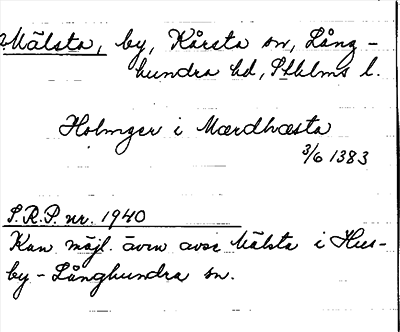 Mälsta, by, Kårsta sn, Lång-
hundra hd, Sthlms l.
Holmger i Mærdhæsta
3/6 1383
S.R.P. nr. 1940
Kan möjl. även avse Mälsta i Hus-
by-Långhundra sn.